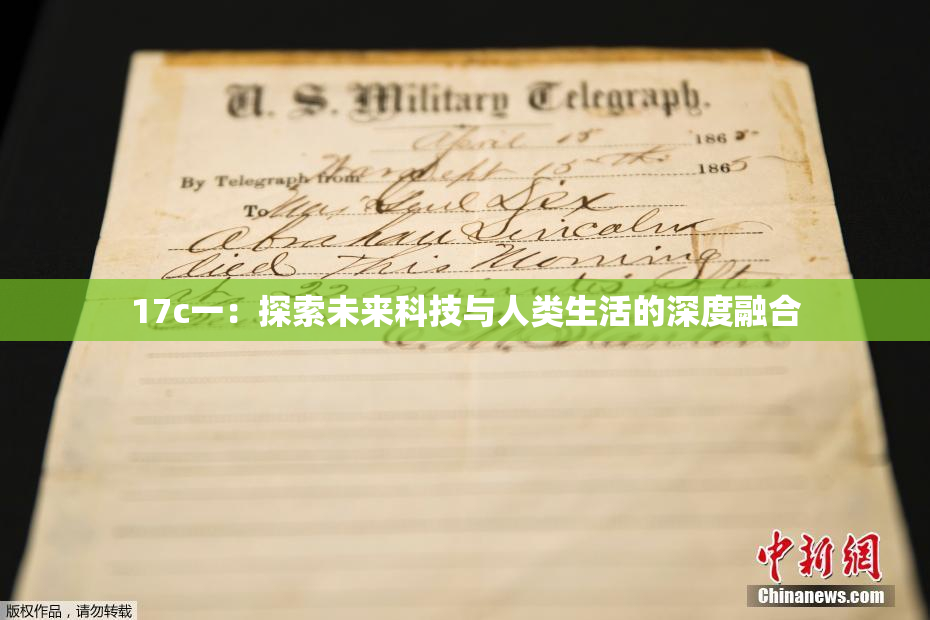 U. S. Military Telegraph.
April 15 1865
By Telegraph from War Dept 15th 1865
To Maj Genl Dix
Abraham Lincoln
died This Morning
at 22 minutes after
17c一：探索未来科技与人类生活的深度融合
中新网
Chinanews.com
版权作品，请勿转载